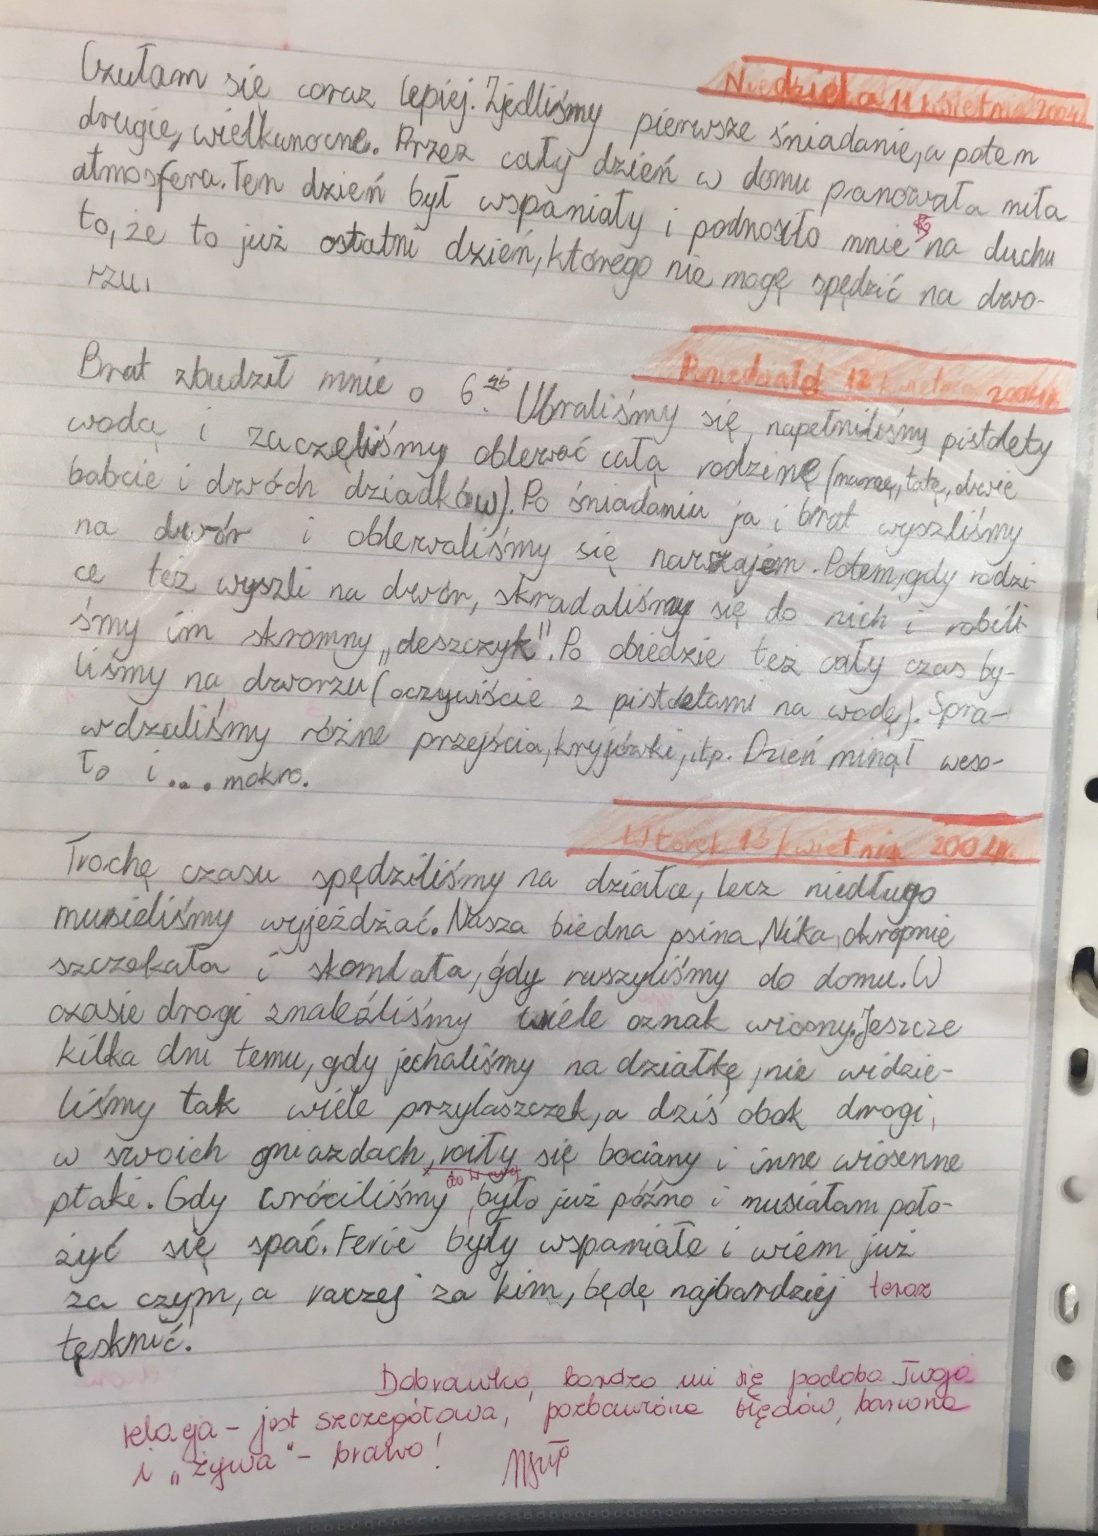 Niedziela 11 kwietnia 2004r.
Czułam się coraz lepiej. Zjedliśmy pierwsze śniadanie, a potem
drugie, wielkanocne. Przez cały dzień w domu panowała miła
atmosfera. Ten dzień był wspaniały i podnosiło mnie na duchu
to, że to już ostatni dzień, którego nie mogę spędzić na dwo-
rzu.
Poniedziałek 12 kwietnia 2004r.
Brat zbudził mnie o 6. Ubraliśmy się, napełniliśmy pistolety
wodą i zaczęliśmy oblewać całą rodzinę (mamę, tatę, dwie
babcie i dwóch dziadków). Po śniadaniu ja i brat wyszliśmy
na dwór i oblewaliśmy się nawzajem. Potem, gdy rodzi-
ce też wyszli na dwór, skradaliśmy się do nich i robili-
śmy im skromny „deszczyk". Po obiedzie też cały czas by-
liśmy na dworzu (oczywiście z pistoletami na wodę). Spra-
wdzaliśmy różne przejścia, kryjówki, itp. Dzień minął weso-
ło i .... mokro.
Wtorek 13 kwietnia 2004r.
Trochę czasu spędziliśmy na działce, lecz niedługo
musieliśmy wyjeżdżać. Nasza biedna psina, Nika, okropnie
szczekała i skomlała, gdy ruszyliśmy do domu. W
czasie drogi znaleźliśmy wiele oznak wiosny. Jeszcze
kilka dni temu, gdy jechaliśmy na działkę, nie widzie-
liśmy tak wiele przylaszczek, a dziś obok drogi,
w swoich gniazdach, roiły się bociany i inne wiosenne
ptaki. Gdy wróciliśmy, było już późno i musiałam poło-
żyć się spać. Ferie były wspaniałe i wiem już
za czym, a raczej za kim, będę najbardziej teraz
tęsknić.
Dobrawko, bardzo mi się podoba Twoja
relacja – jest szczegółowa, pozbawiona błędów, barwna
i „żywa" – brawo!